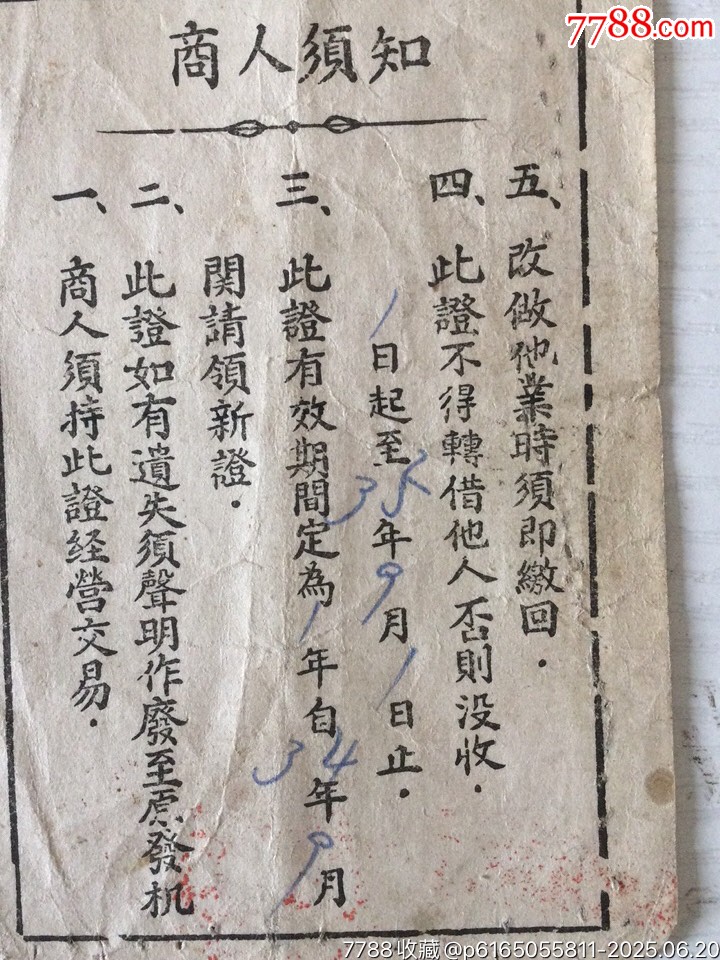 7788.com
商人須知
一、商人須持此證经營交易.
二、此證如有遺失須聲明作廢至原發机
関請領新證.
三、此證有效期間定為1年自34年9月
1日起至35年9月1日止.
四、此證不得轉借他人否則没收.
五、改做他業時須即繳回.
7788收藏@p6165055811-2025.06.20